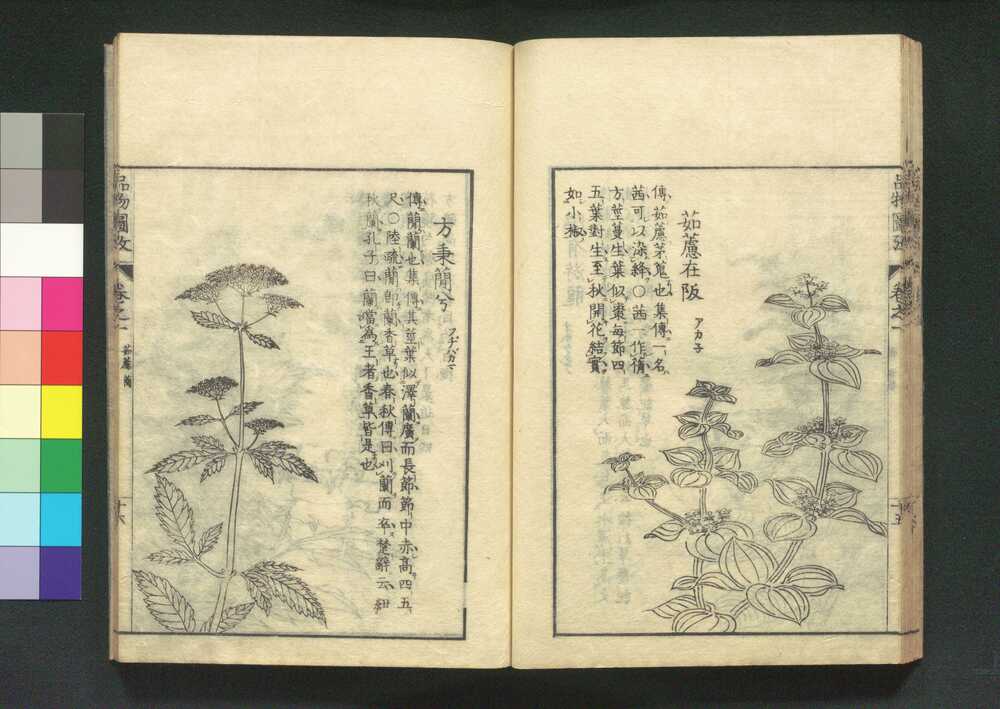 茹藘在阪
アカネ
傳茹藘茅蒐也集傳一名
茜可以染絳〇茜一作蒨
方莖蔓生葉似棗每節四
五葉對生至秋開花結實
如小椒
品物圖攷
卷之一
十五
方秉蕳兮
フヂバカマ
傳蕳蘭也集傳其莖葉似澤蘭廣而長節節中赤高四五
尺〇陸疏蕳卽蘭香草也春秋傳曰刈蘭而卒楚辭云紉
秋蘭孔子曰蘭當為王者香草皆是也
品物圖攷
卷之一
茹藘 蕳
十六